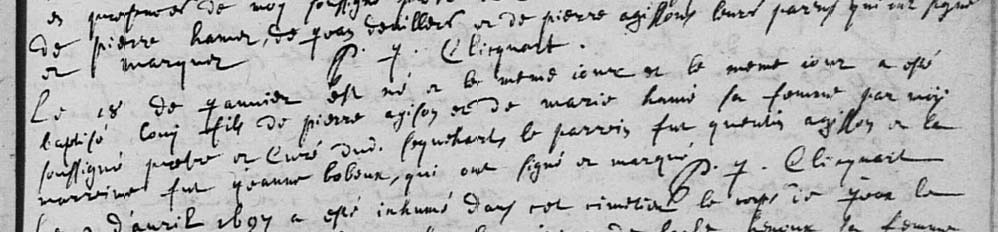 en presences de moy soussigné
de pierre hamé, de jean devillers et de pierre agissons leurs parens qui ont signé
et marquer P. J. Clicquart.
Le 18 de janvier est né et le meme jour et le meme jour a esté
baptisé Louÿ fils de pierre agison et de marie hamé sa femme par moÿ
soussigné prebtre et Curé dud. sequeharts le parrein fut quentin agisson et la
marreine fut jeanne boleux, qui ont signé et marqué P. J. Clicquart
d'avril 1697 a esté inhumé dans cet cimetiere le corps de jean le
sa femme